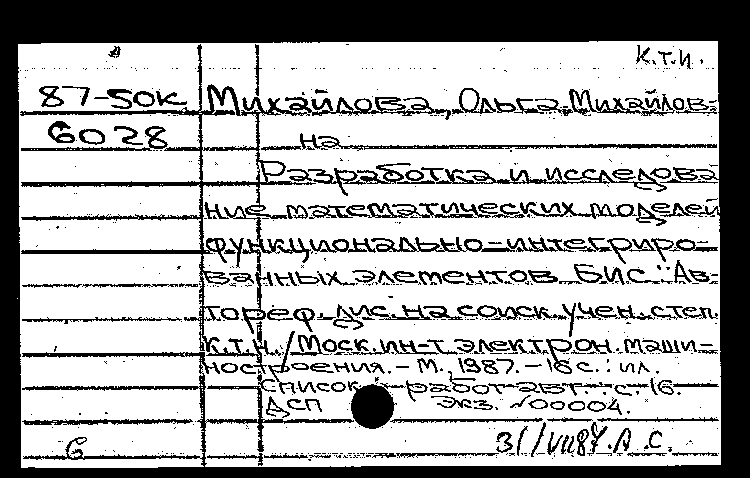 к.т.н.
87-50к Михайлова, Ольга Михайлов-
6028 на
Разработка и исследова
ние математических моделей
функционально-интегриро-
ванных элементов БИС: Ав-
тореф. дис. на соиск. учен. степ.
к.т.н. / Моск. ин-т электрон. маши-
ностроения. - М., 1987. - 16 с. : ил.
Список работ авт.: с. 16.
ДСП Экз. №00004.
6 31/VII87. А. С.